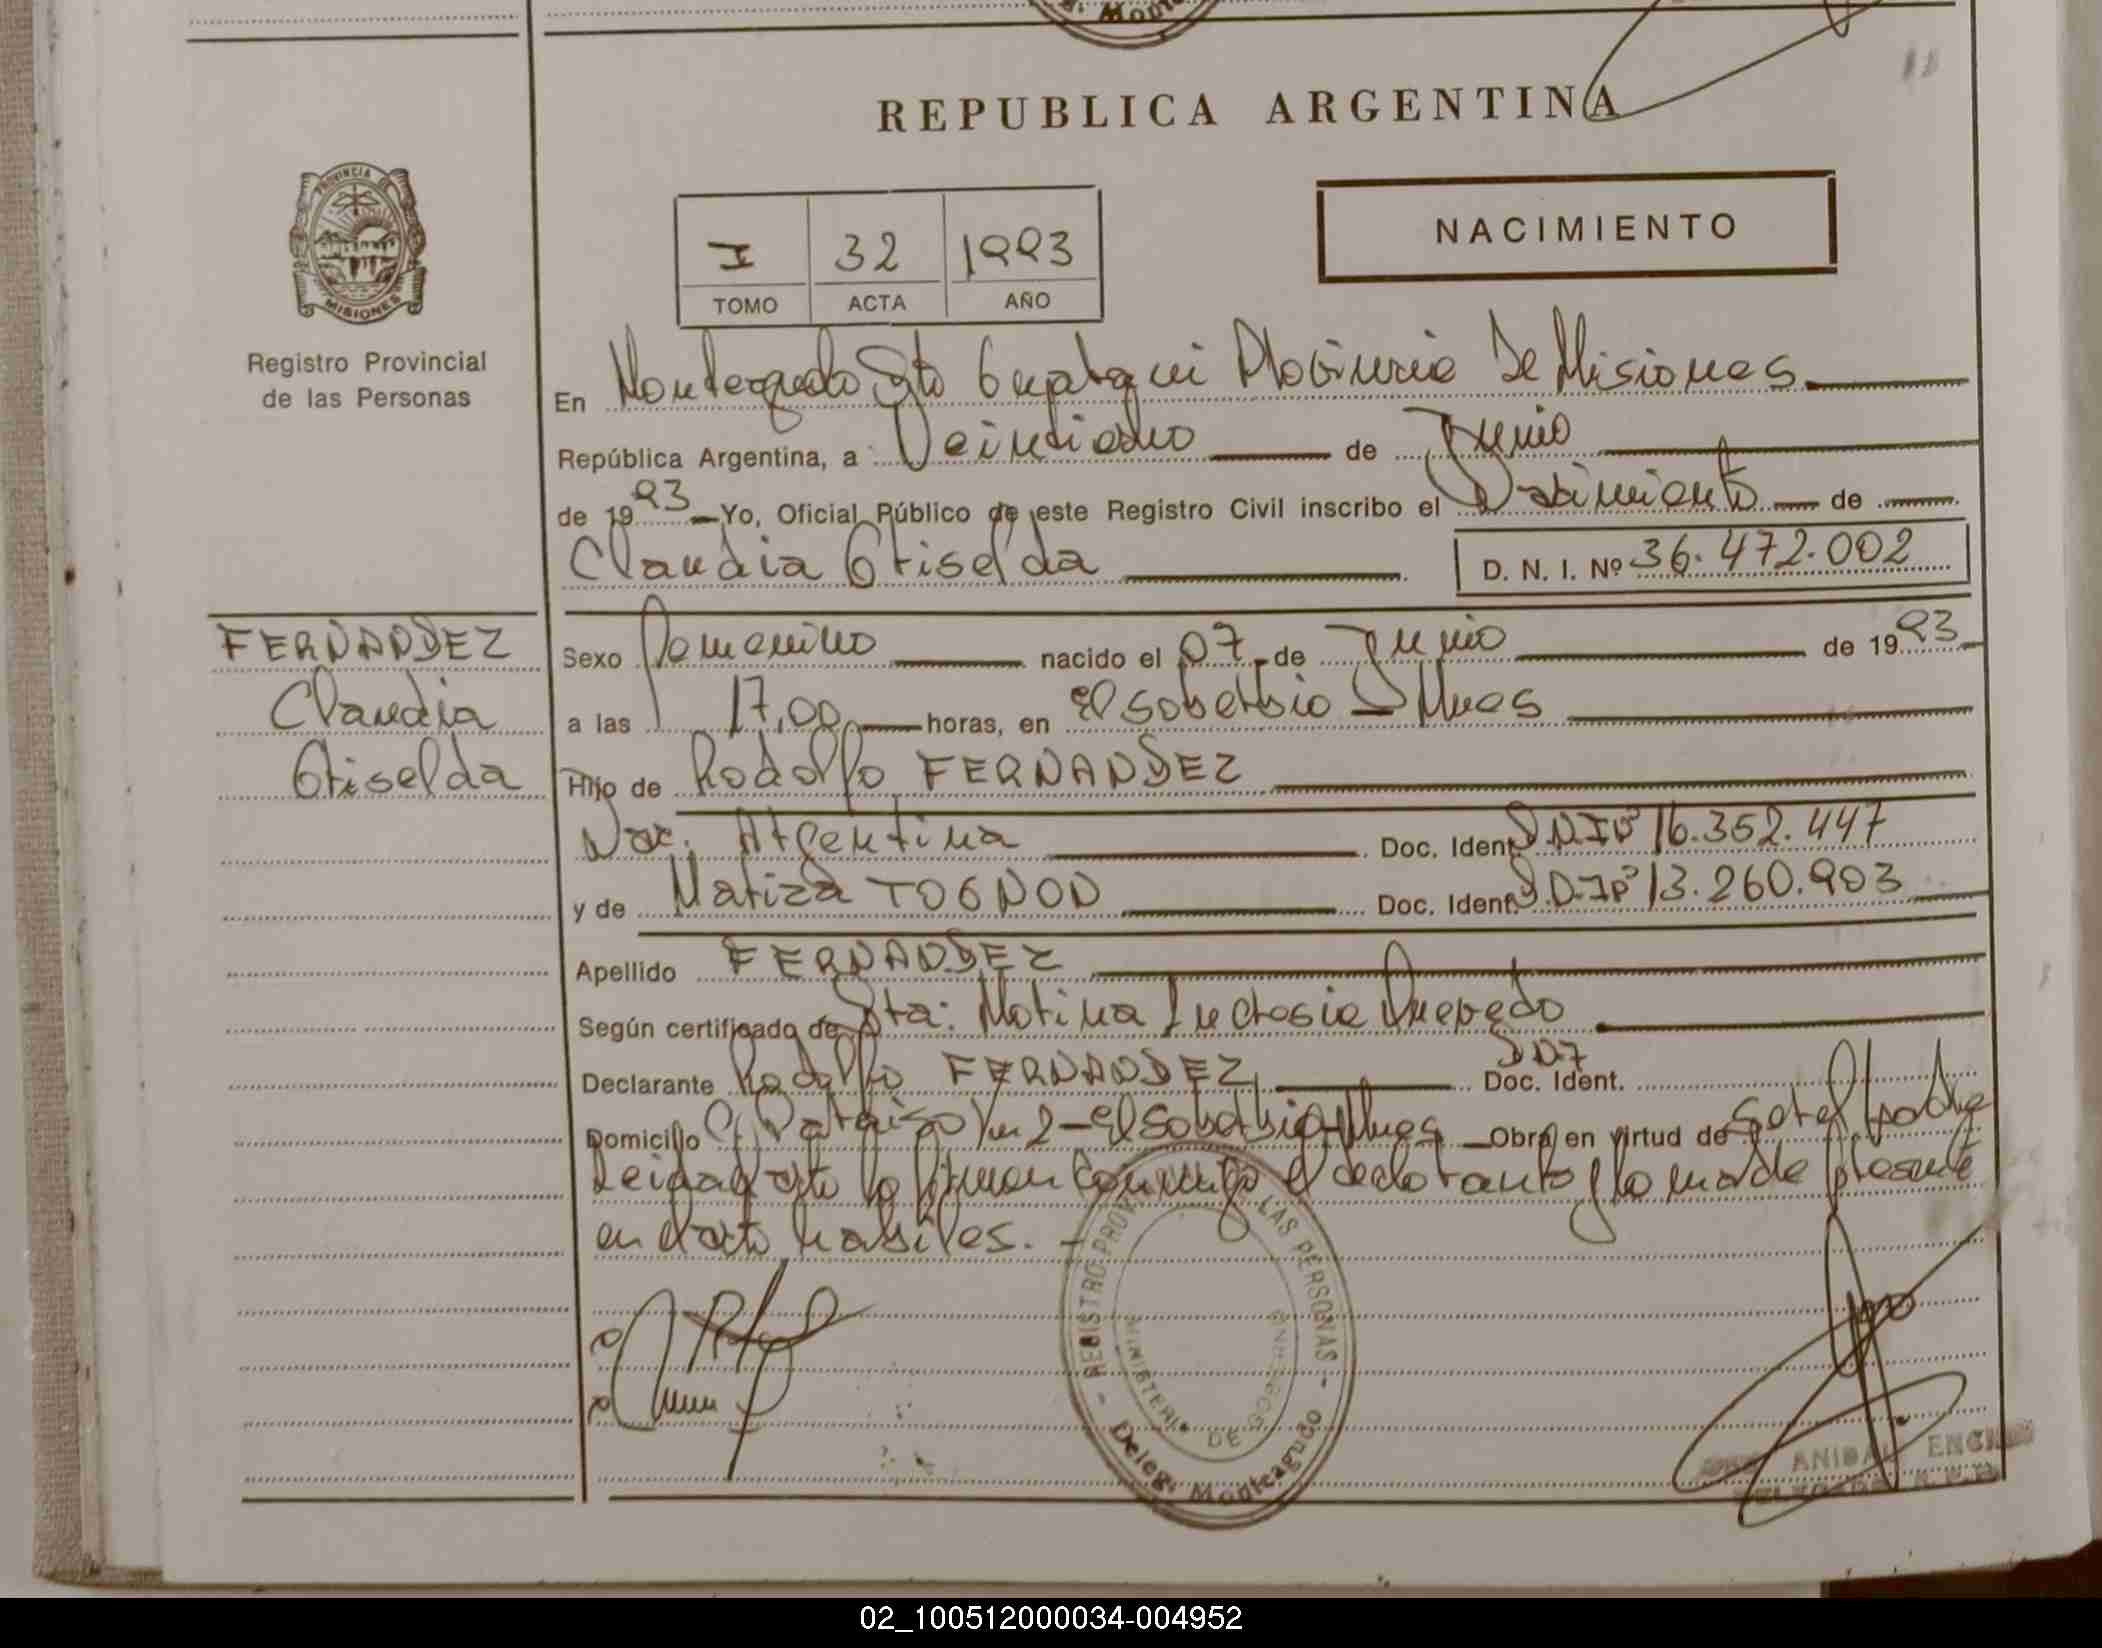 REPUBLICA ARGENTINA
NACIMIENTO
I 32 1993
TOMO ACTA AÑO
PROVINCIA DE
MISIONES
Registro Provincial
de las Personas
En Monteagudo Dto Guaraqui Provincia De Misiones
República Argentina, a Veintiocho de Junio
de 1993 Yo, Oficial Público de este Registro Civil inscribo el Nacimiento de
Claudia Griselda
D. N. I. Nº 36.472.002
FERNANDEZ
Claudia
Griselda
Sexo Femenino nacido el 07 de Junio de 1993
a las 17,00 horas, en El Soberbio Mnes
Hijo de Rodolfo FERNANDEZ
Nac. Argentina Doc. Ident. DNINº 16.352.447
y de Mariza TOGNON Doc. Ident. 13.260.903
Apellido FERNANDEZ
Según certificado de Sta: Quevedo
Declarante Rodolfo FERNANDEZ Doc. Ident.
Domicilio Paraiso Km 2 - El Soberbio Mnes Obra en virtud de ser el padre
Leida el acta la firman conmigo el declarante y la madre presente
en el acto habiles.
REGISTRO PROV LAS PERSONAS
MINISTERIO DE GOBIERNO
Deleg. Monteagudo
ANIBAL
02_100512000034-004952